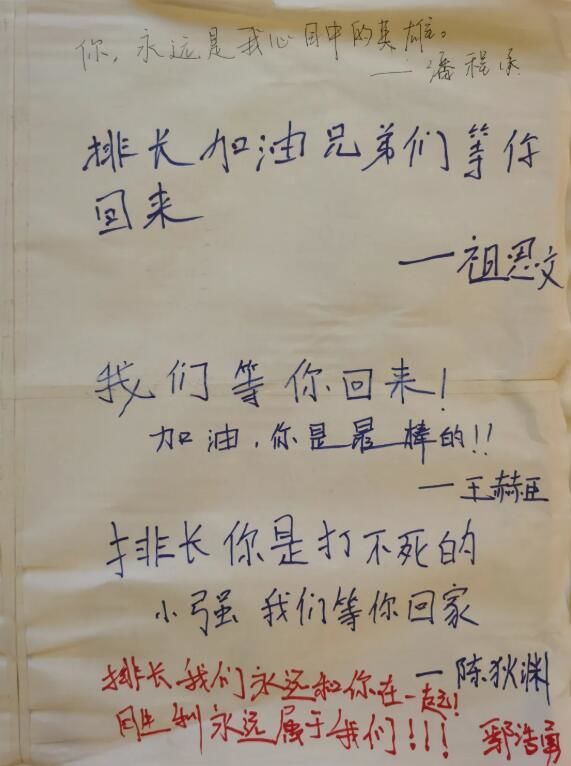 你,永远是我心目中的英雄。
——潘程
排长加油兄弟们等你
回来
—祖恩文
我们等你回来!
加油,你是最棒的!!
—王赫臣
排长你是打不死的
小强 我们等你回家
—陈狄渊
排长我们永远和你在一起!
胜利永远属于我们!!! 鄂浩勇